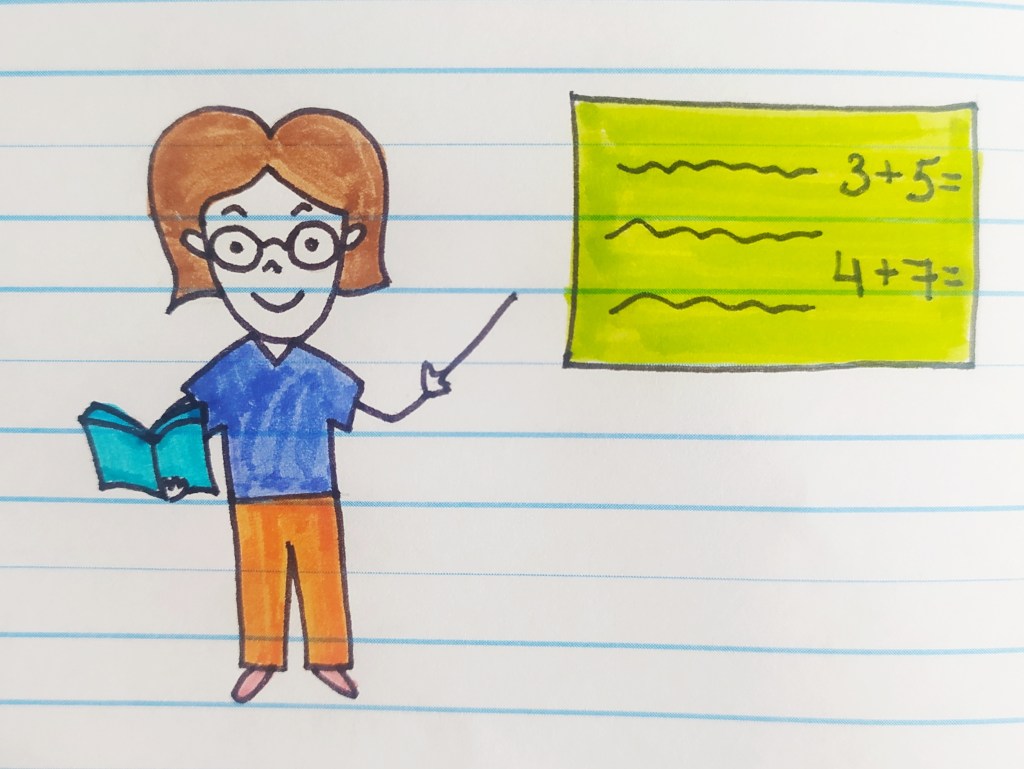 3+5=
4+7=